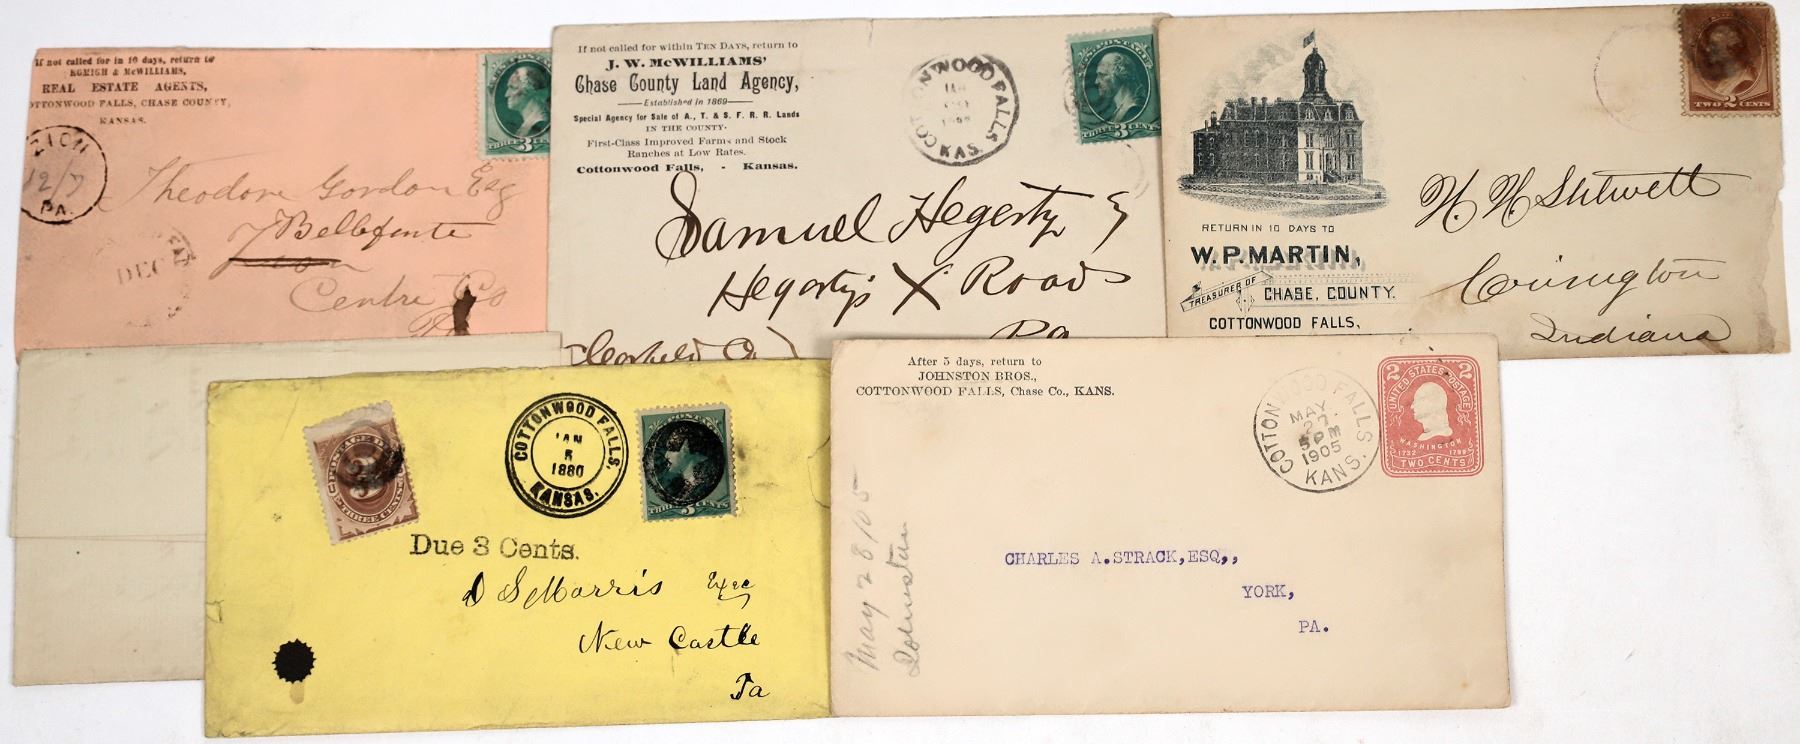 If not called for in 10 days, return to
ROMIGH & McWILLIAMS,
REAL ESTATE AGENTS,
OTTONWOOD FALLS, CHASE COUNTY,
KANSAS.
ZION
12/7
PA.
DEC
THREE 3 CENTS
Theodore Gordon Esq
Bellefonte
Centre Co
If not called for within TEN DAYS, return to
J. W. McWILLIAMS'
Chase County Land Agency,
Established in 1869
Special Agency for Sale of A., T. & S. F. R. R. Lands
IN THE COUNTY.
First-Class Improved Farms and Stock
Ranches at Low Rates.
Cottonwood Falls, - Kansas.
COTTONWOOD FALLS,
KAS.
THREE 3 CENTS
Samuel Hegerty
Hegerty's X Roads
Pa
Clearfield Co
RETURN IN 10 DAYS TO
W. P. MARTIN,
TREASURER OF
CHASE, COUNTY.
COTTONWOOD FALLS,
TWO 2 CENTS
Covington
Indiana
COTTONWOOD FALLS,
JAN
5
1880
KANSAS.
THREE CENTS
THREE 3 CENTS
Due 3 Cents.
D S Morris Exec
New Castle
Pa
After 5 days, return to
JOHNSTON BROS.,
COTTONWOOD FALLS, Chase Co., KANS.
COTTONWOOD FALLS
MAY
27
5 PM
1905
KANS.
UNITED STATES POSTAGE
2 2
WASHINGTON
1732 1799
TWO CENTS
CHARLES A. STRACK, ESQ,,
YORK,
PA.
May 28/05
Johnston